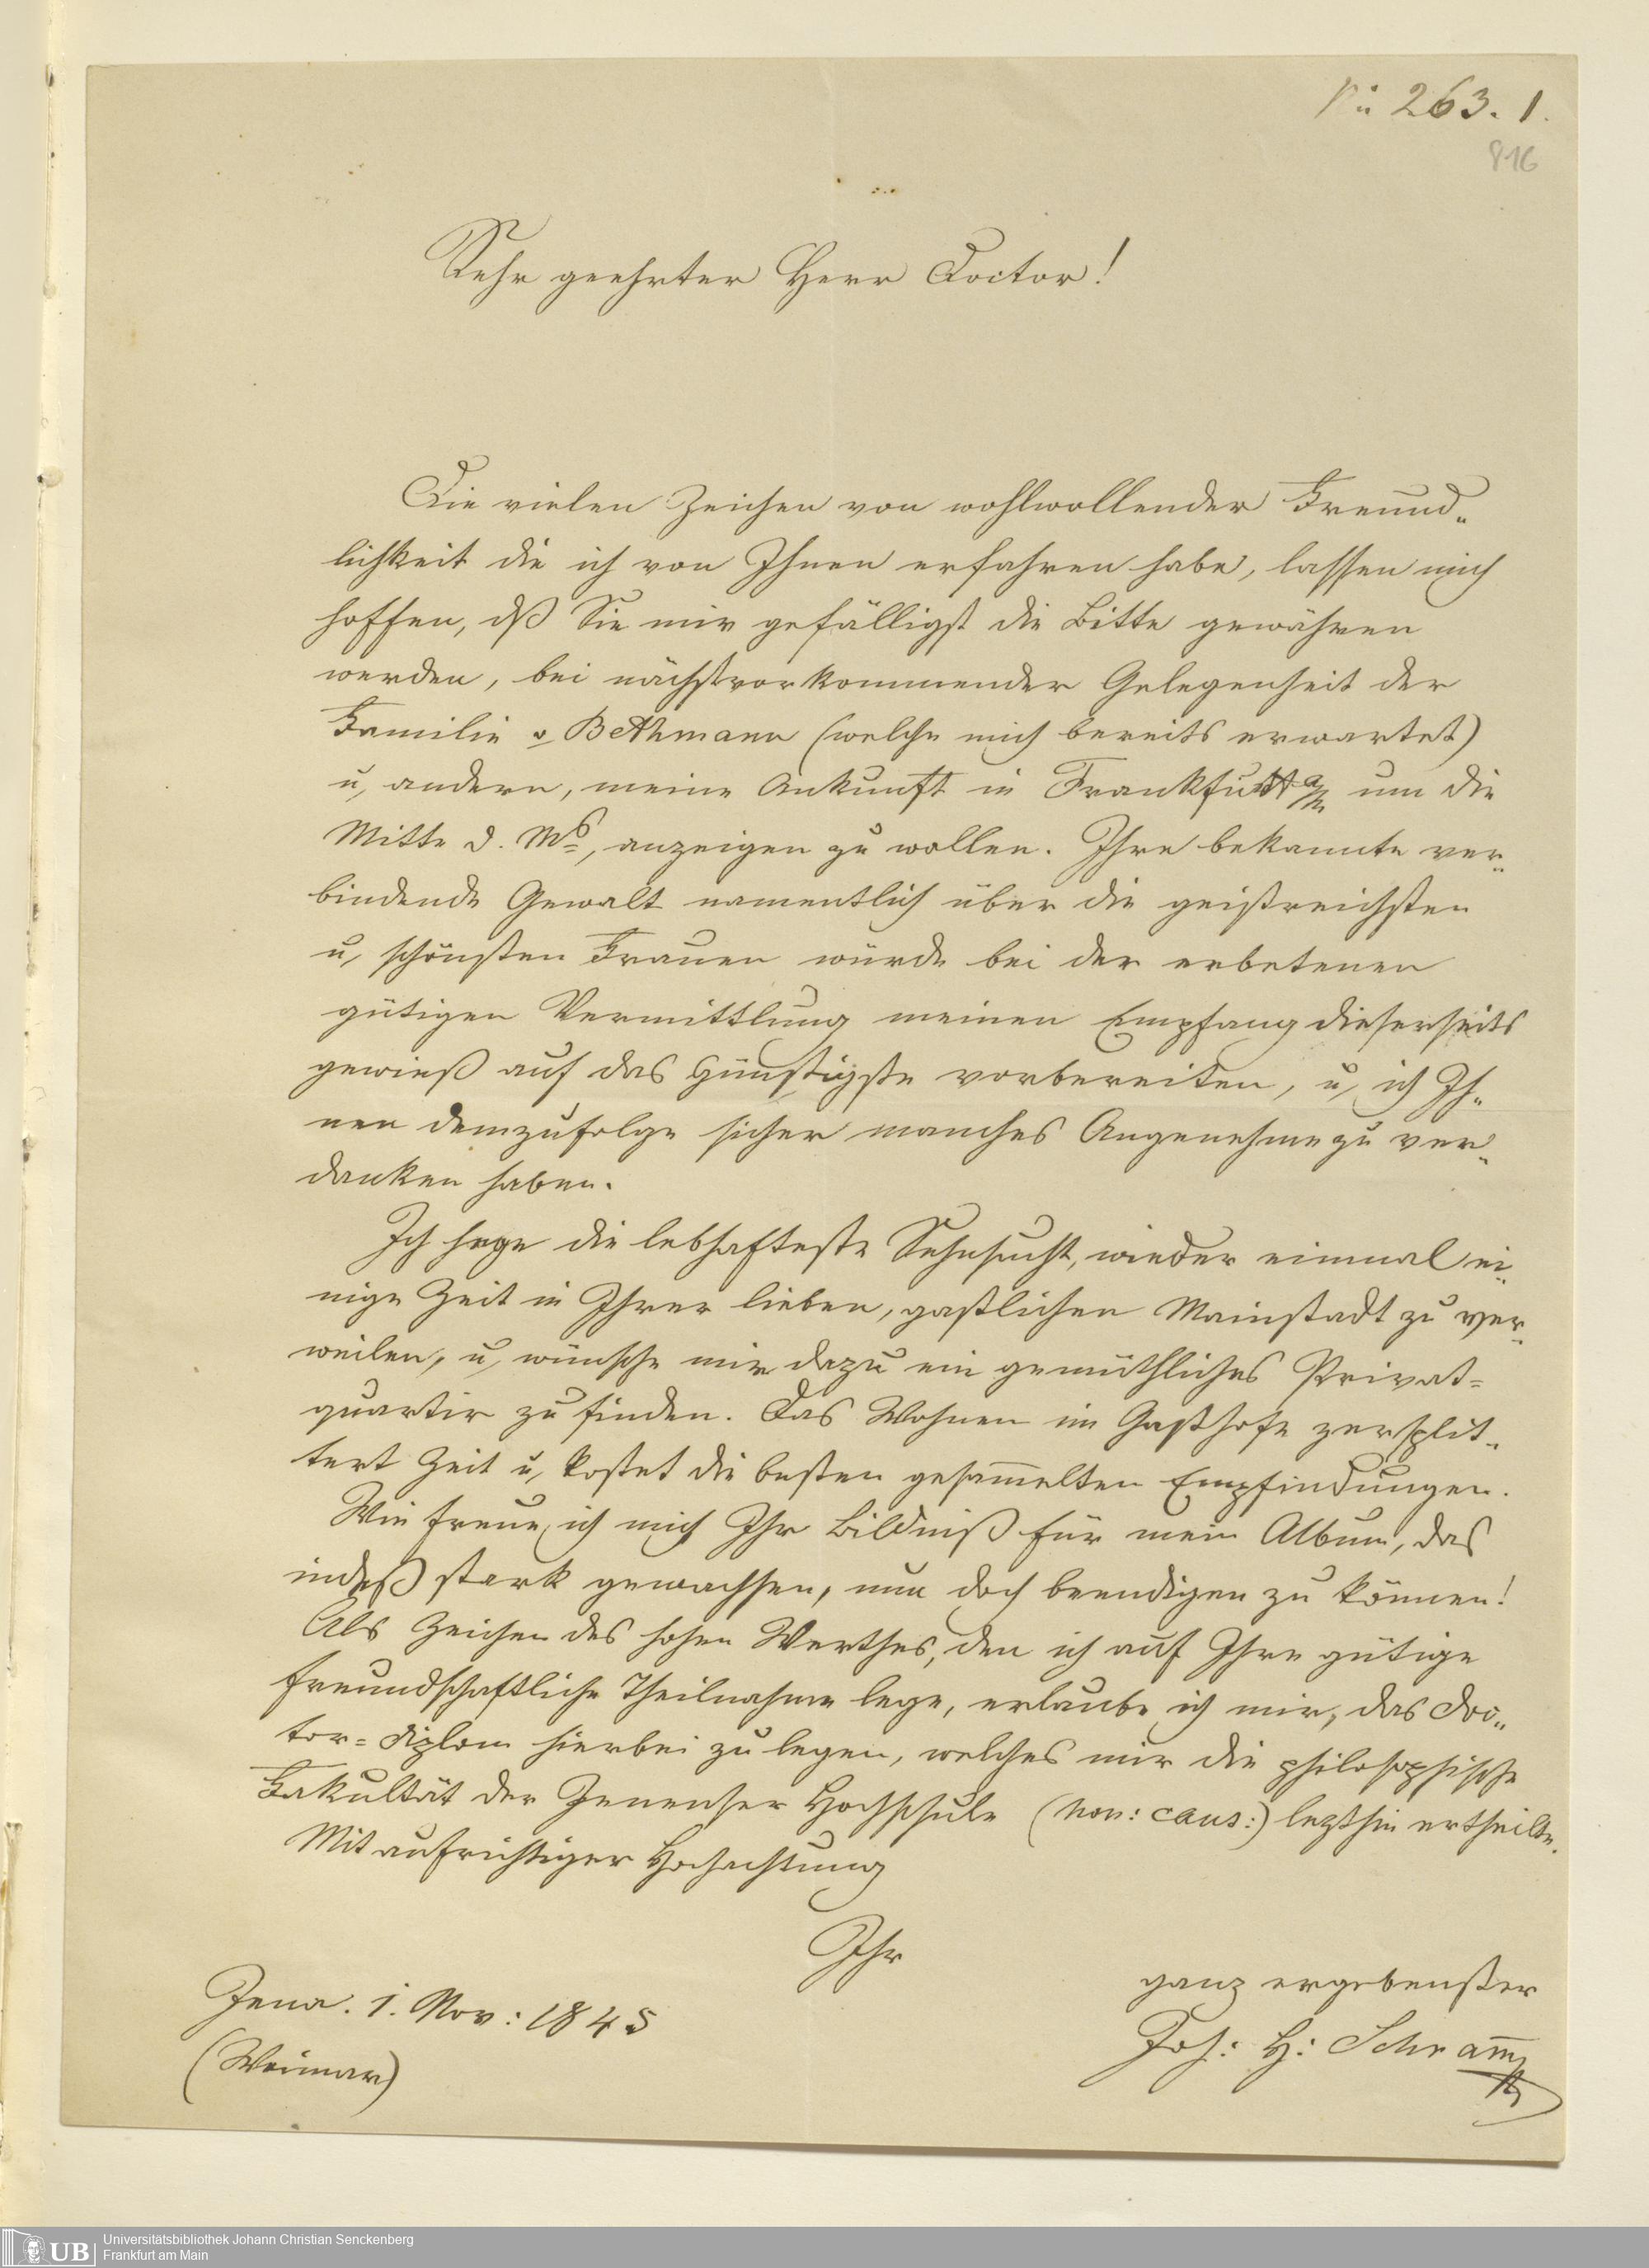 No 263. 1.
816
Sehr geehrter Herr Doctor!
Die vielen Zeichen von wohlwollender Freund-
lichkeit die ich von Ihnen erfahren habe, lassen mich
hoffen, dß Sie mir gefälligst die Bitte gewähren
werden, bei nächstvorkommender Gelegenheit der
Familie v Bethmann (welche mich bereits erwartet)
u, andern, meine Ankunft in Frankfurt a/m um die
Mitte d. Ms, anzeigen zu wollen. Ihre bekannte ver-
bindende Gewalt namentlich über die geistreichsten
u, schönsten Frauen würde bei der erbetenen
gütigen Vermittlung meinen Empfang dieserseits
gewieß auf das Günstigste vorbereiten, u, ich Ih-
nen demzufolge sicher manches Angenehme zu ver-
danken haben.
Ich hege die lebhafteste Sehnsucht, wieder einmal ei-
nige Zeit in Ihrer lieben, gastlichen Mainstadt zu ver-
weilen, u, wünsche mir dazu ein gemüthliches Privat-
quartir zu finden. Das Wohnen im Gasthofe zersplit-
tert Zeit u, kostet die besten gesammelten Empfindungen.
Wie freue ich mich Ihr Bildniß für mein Album, das
indeß stark gewachsen, nun doch beendigen zu können!
Als Zeichen des hohen Werthes, den ich auf Ihre gütige
freundschaftliche Theilnahme lege, erlaube ich mir, das Doc-
tor=diplom hierbei zu legen, welches mir die philosophische
Fakultät der Jenenser Hochschule (hon: caus:) lezthin ertheilte.
Mit aufrichtiger Hochachtung
Ihr
ganz ergebenster
Joh: H: Schramm
Jena. 1. Nov: 1845
(Weimar)
UB
Universitätsbibliothek Johann Christian Senckenberg
Frankfurt am Main